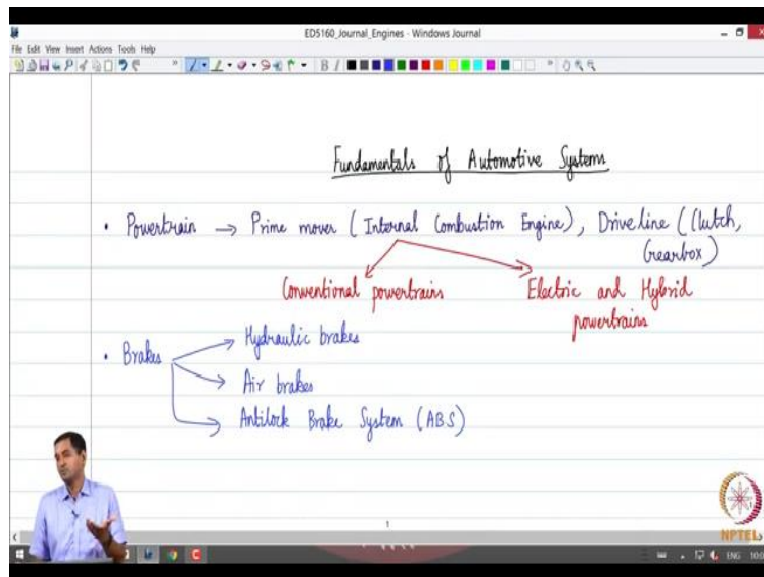 ED5160_Journal_Engines - Windows Journal
File Edit View Insert Actions Tools Help
B I
Fundamentals of Automotive Systems
• Powertrain → Prime mover ( Internal Combustion Engine), Driveline ((lutch,
Gearbox)
Conventional powertrains
Electric and Hybrid
powertrains
• Brakes
Hydraulic brakes
Air brakes
Antilock Brake System (ABS)
1
NPTEL
ENG